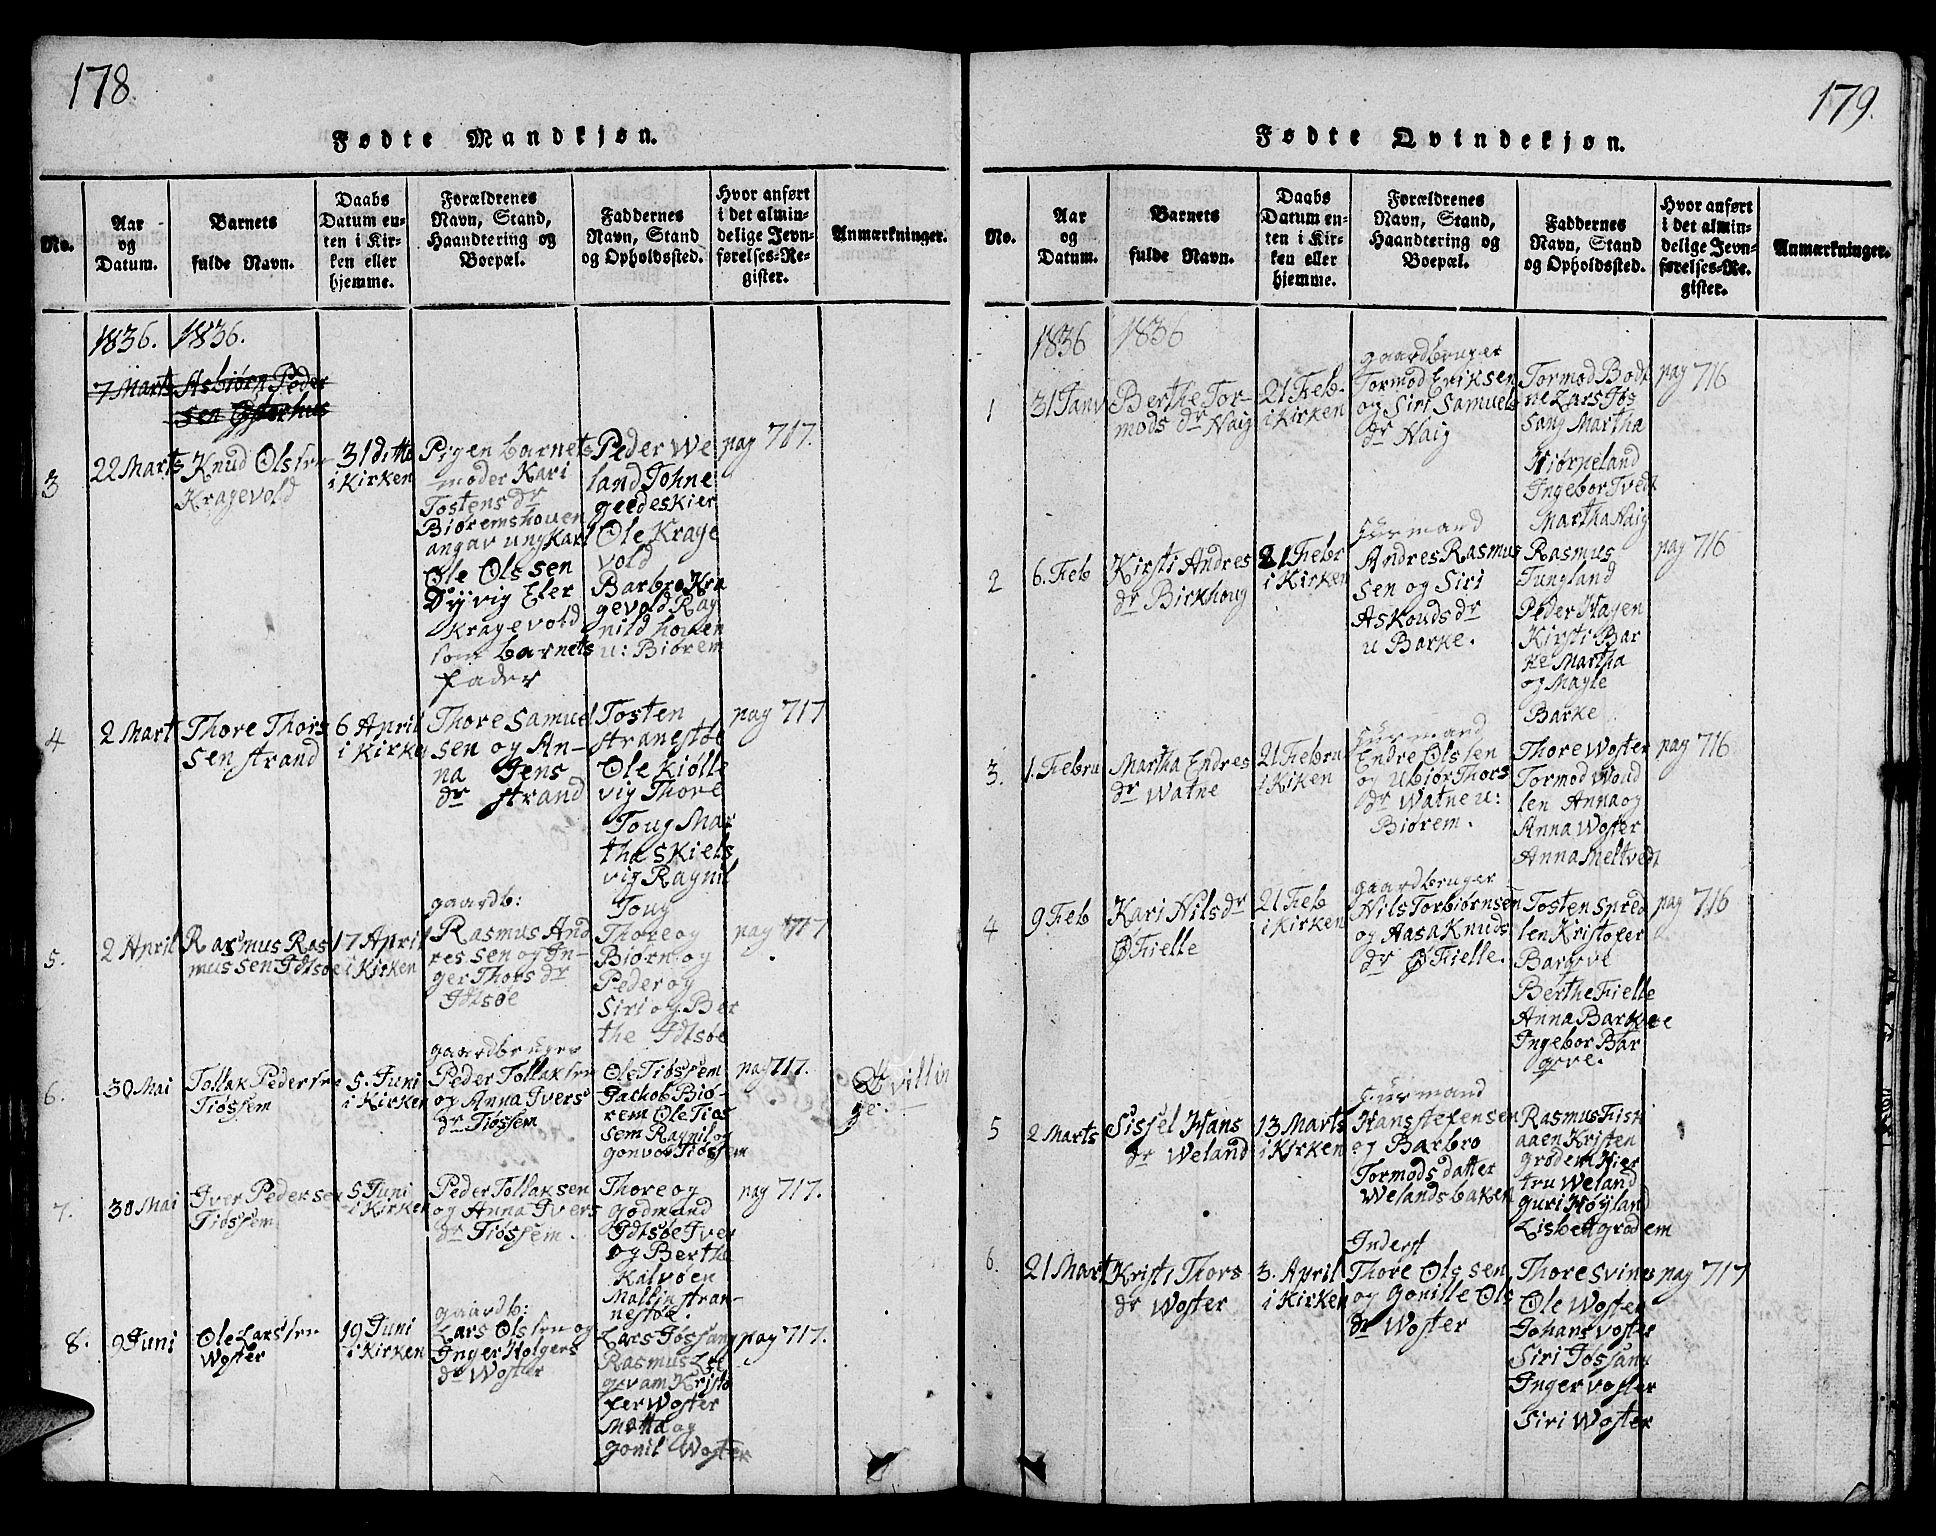 178.
Fødte Mandkjøn.
No.
Aar
og
Datum.
Barnets
fulde Navn.
Daabs
Datum en-
ten i Kir-
ken eller
hjemme.
Forældrenes
Navn, Stand,
Haandtering og
Boepæl.
Faddernes
Navn, Stand
og Opholdssted.
Hvor anført
i det almin-
delige Jevn-
førelses-Re-
gister.
Anmærkninger.
1836. 1836.
7 Marts Asbiørn Peder
sen
3
22 Marts
Knud Olssen
Kragevold
31 ditto
i Kirken
Pigen barnets
moder Kari
Tostens dr
Biøremshouen
angav ungkarl
Ole Olssen
Dyvig Eler
Kragevold
som barnets
fader
Peder We
land Johne
geedeskier
Ole Krage
vold
Barbro Kra
gevold Rag
nild houen
u: Biørem
pag 717.
4
2 Mart
Thore Thors
sen Strand
6 April
i Kirken
Thore Samuel
sen og An-
na Jens
dr Strand
Tosten
stranestøe
Ole Kiølle
vig Thore
Toug Mar
tha Skiels
vig Ragnil
Toug
pag 717
5.
2 April
Rasmus Ras
mussen Idtsøe
17 April
i Kirken
gaardb:
Rasmus And
ressen og In-
ger Thors dr
Idtsøe
Thore og
Biørn og
Peder og
Siri og Ber
the Idtsøe
pag 717
6.
30 Mai
Tollak Pedersen
Tiøssem
5. Juni
i Kirken
gaardbruger
Peder Tollaksen
og Anna Ivers
dr Tiøssem
Ole Tiøssem
Jachob Biø-
rem Ole Tiøs
sem Ragnil og
gonvor Tiøssem
pag 717.
Tvillin
ge.
7.
30 Mai
Iver Pedersen
Tiøssem
5 Juni
i Kirken
Peder Tollaksen
og Anna Ivers
dr Tiøssem.
Thore og
godmand
Idtsøe Iver
og Berthe
Kalvøen
Mallia stran-
nestøe.
pag 717.
8.
9 Juni
Ole Larssen
Woster
19 Juni
i Kirken
gaardb:
Lars Olssen og
Inger Holgers
dr Woster
Lars Jøssang
Rasmus
Kristo
fer Woster
og
gonil Woster
pag 717.
179.
Fødte Qvindekjøn.
No.
Aar
og
Datum.
Barnets
fulde Navn.
Daabs
Datum en-
ten i Kir-
ken eller
hjemme.
Forældrenes
Navn, Stand,
Haandtering og
Boepæl.
Faddernes
Navn, Stand
og Opholdssted.
Hvor anført
i det almin-
delige Jevn-
førelses-Re-
gister.
Anmærkninger.
1836 1836
1
31 Janv
Berthe Tor-
mods dr Haig
21 Feb
i Kirken
gaardbruger
Tormod Eriksen
og Siri Samuels
dr Haig
Tormod Bodt
ne Lars Jøs
sang Martha
Hiørneland
Ingebor Tvedt
Martha Haig
pag 716
2
6. Feb
Kirsti Andres
dr Birkhoug
21 Febr
i Kirken
Andres Rasmus
sen og Siri
Askouds dr
u Barke.
Rasmus
Tungland
Peder Hagen
Kirsti Bar
ke Martha
og Magle
Barke
pag 716
3.
1. Febru
Martha Endres
dr Watne
21 Febru
i Kirken
Endre Olssen
og Ubior Thors
dr Watne u:
Biørem.
Thore Woster
Tormod Woud
len Anna og
Anna Woster
Anna Meltvedt
pag 716
4
9 Feb
Kari Nils dr
Ø Fielle
21 Feb
i Kirken
gaardbruger
Nils Torbiørnsen
og Aasa Knuds
dr Ø Fielle.
Tosten Spred
len Kristofer
Bargve
Berthe Fielle
Anna Barkee
Ingebor Bar
gve.
pag 716
5
2 Marts
Sissel Hans
dr Weland
13 Marts
i Kirken
Hans Stefensen
og Barbro
Tormods datter
Welandsbaken
Rasmus Fisk
aaen Kristen
grødem Hier
tru Weland
guri Høyland
Lisbett grødem
6.
21 Mart
Kristi Thors
dr Woster
3. April
i Kirken
Inderst
Thore Olssen
og gonille Ols
dr Woster
Thore Svines
Ole Woster
Johans voster
Siri Jøssang
Inger voster
Siri Woster
pag 717